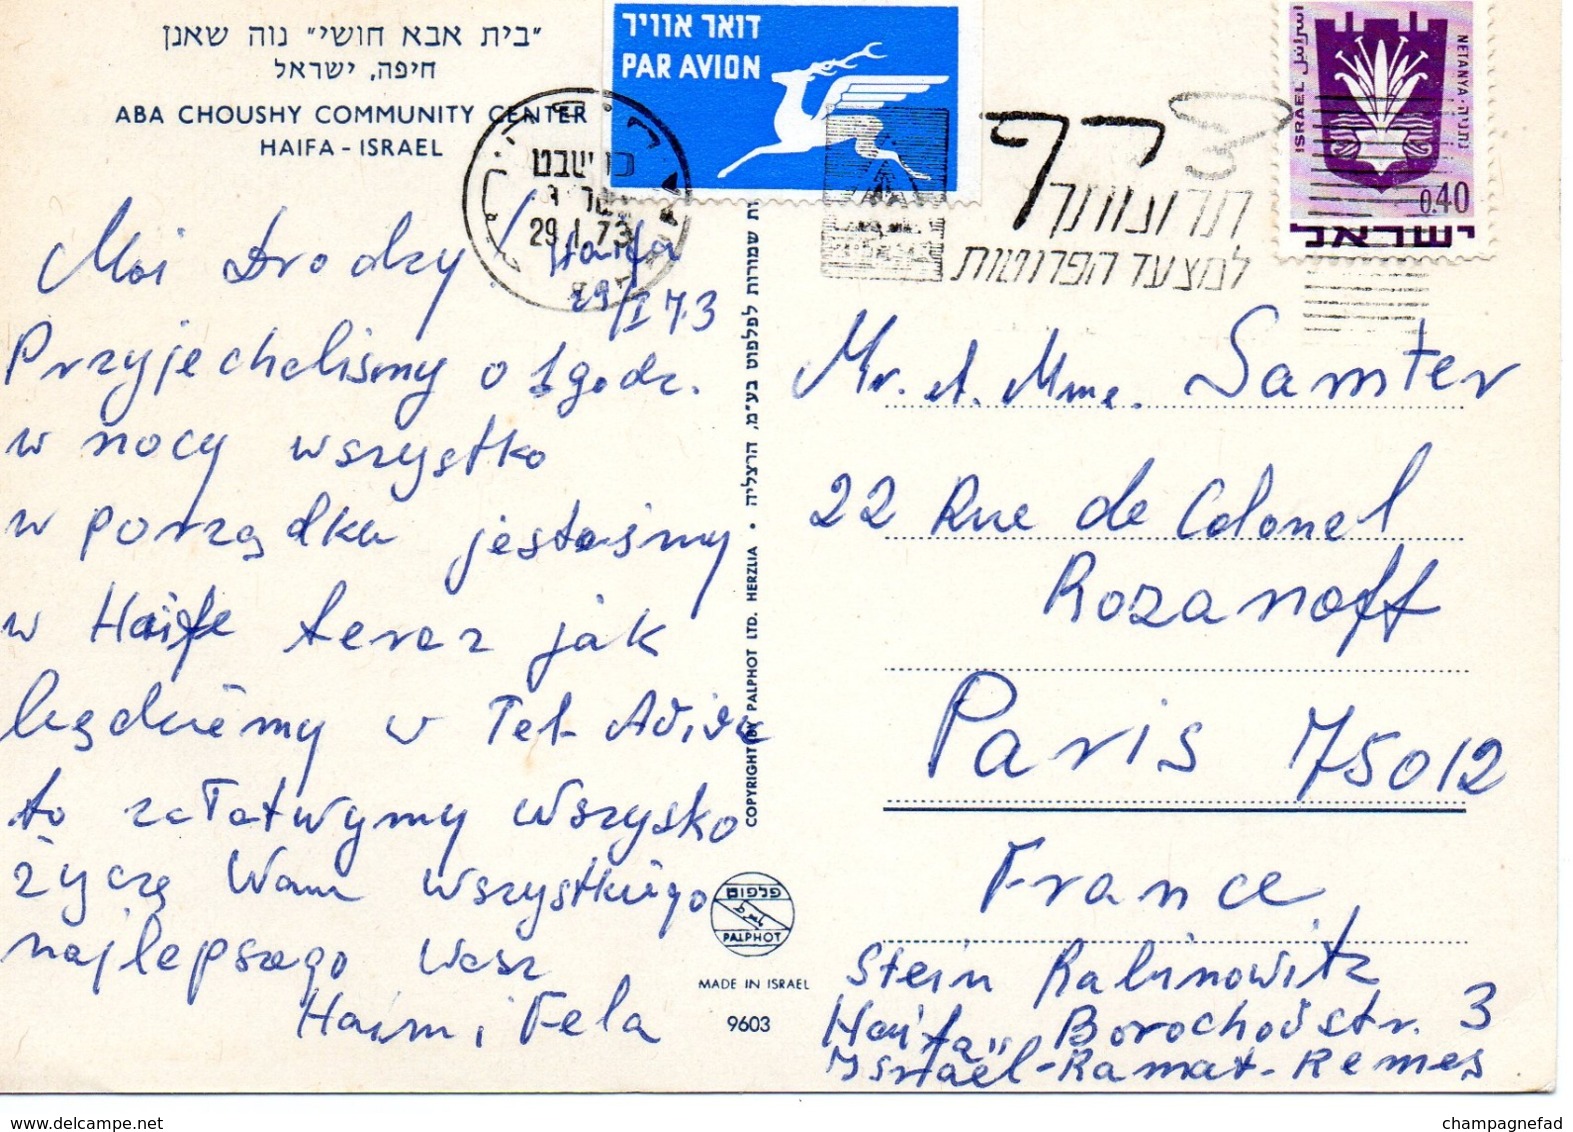 "בית אבא חושי" נוה שאנן
חיפה, ישראל
ABA CHOUSHY COMMUNITY CENTER
HAIFA - ISRAEL
דואר אוויר
PAR AVION
שבט
29.1.73
למצעד הפרוטות
ISRAEL
NETANYA · נתניה
0.40
ישראל
Moi Drodzy! Haifa
29/I 73
Przyjechaliśmy o 1 godz.
w nocy wszystko
w porządku jesteśmy
w Haifie teraz jak
będziemy w Tel-Aviva
to załatwymy wszysko
życzę Wam wszystkiego
najlepszego Wasz
Haim i Fela
COPYRIGHT BY PALPHOT LTD. HERZLIA • שמורות לפלפוט בע"מ, הרצליה
פלפוט
PALPHOT
MADE IN ISRAEL
9603
Mr. et. Mme. Samter
22 Rue de Colonel
Rozanoff
Paris 75012
France
Stein Rabinowitz
Haifa, Borochov str. 3
Israël-Ramat-Remes
www.delcampe.net
champagnefad